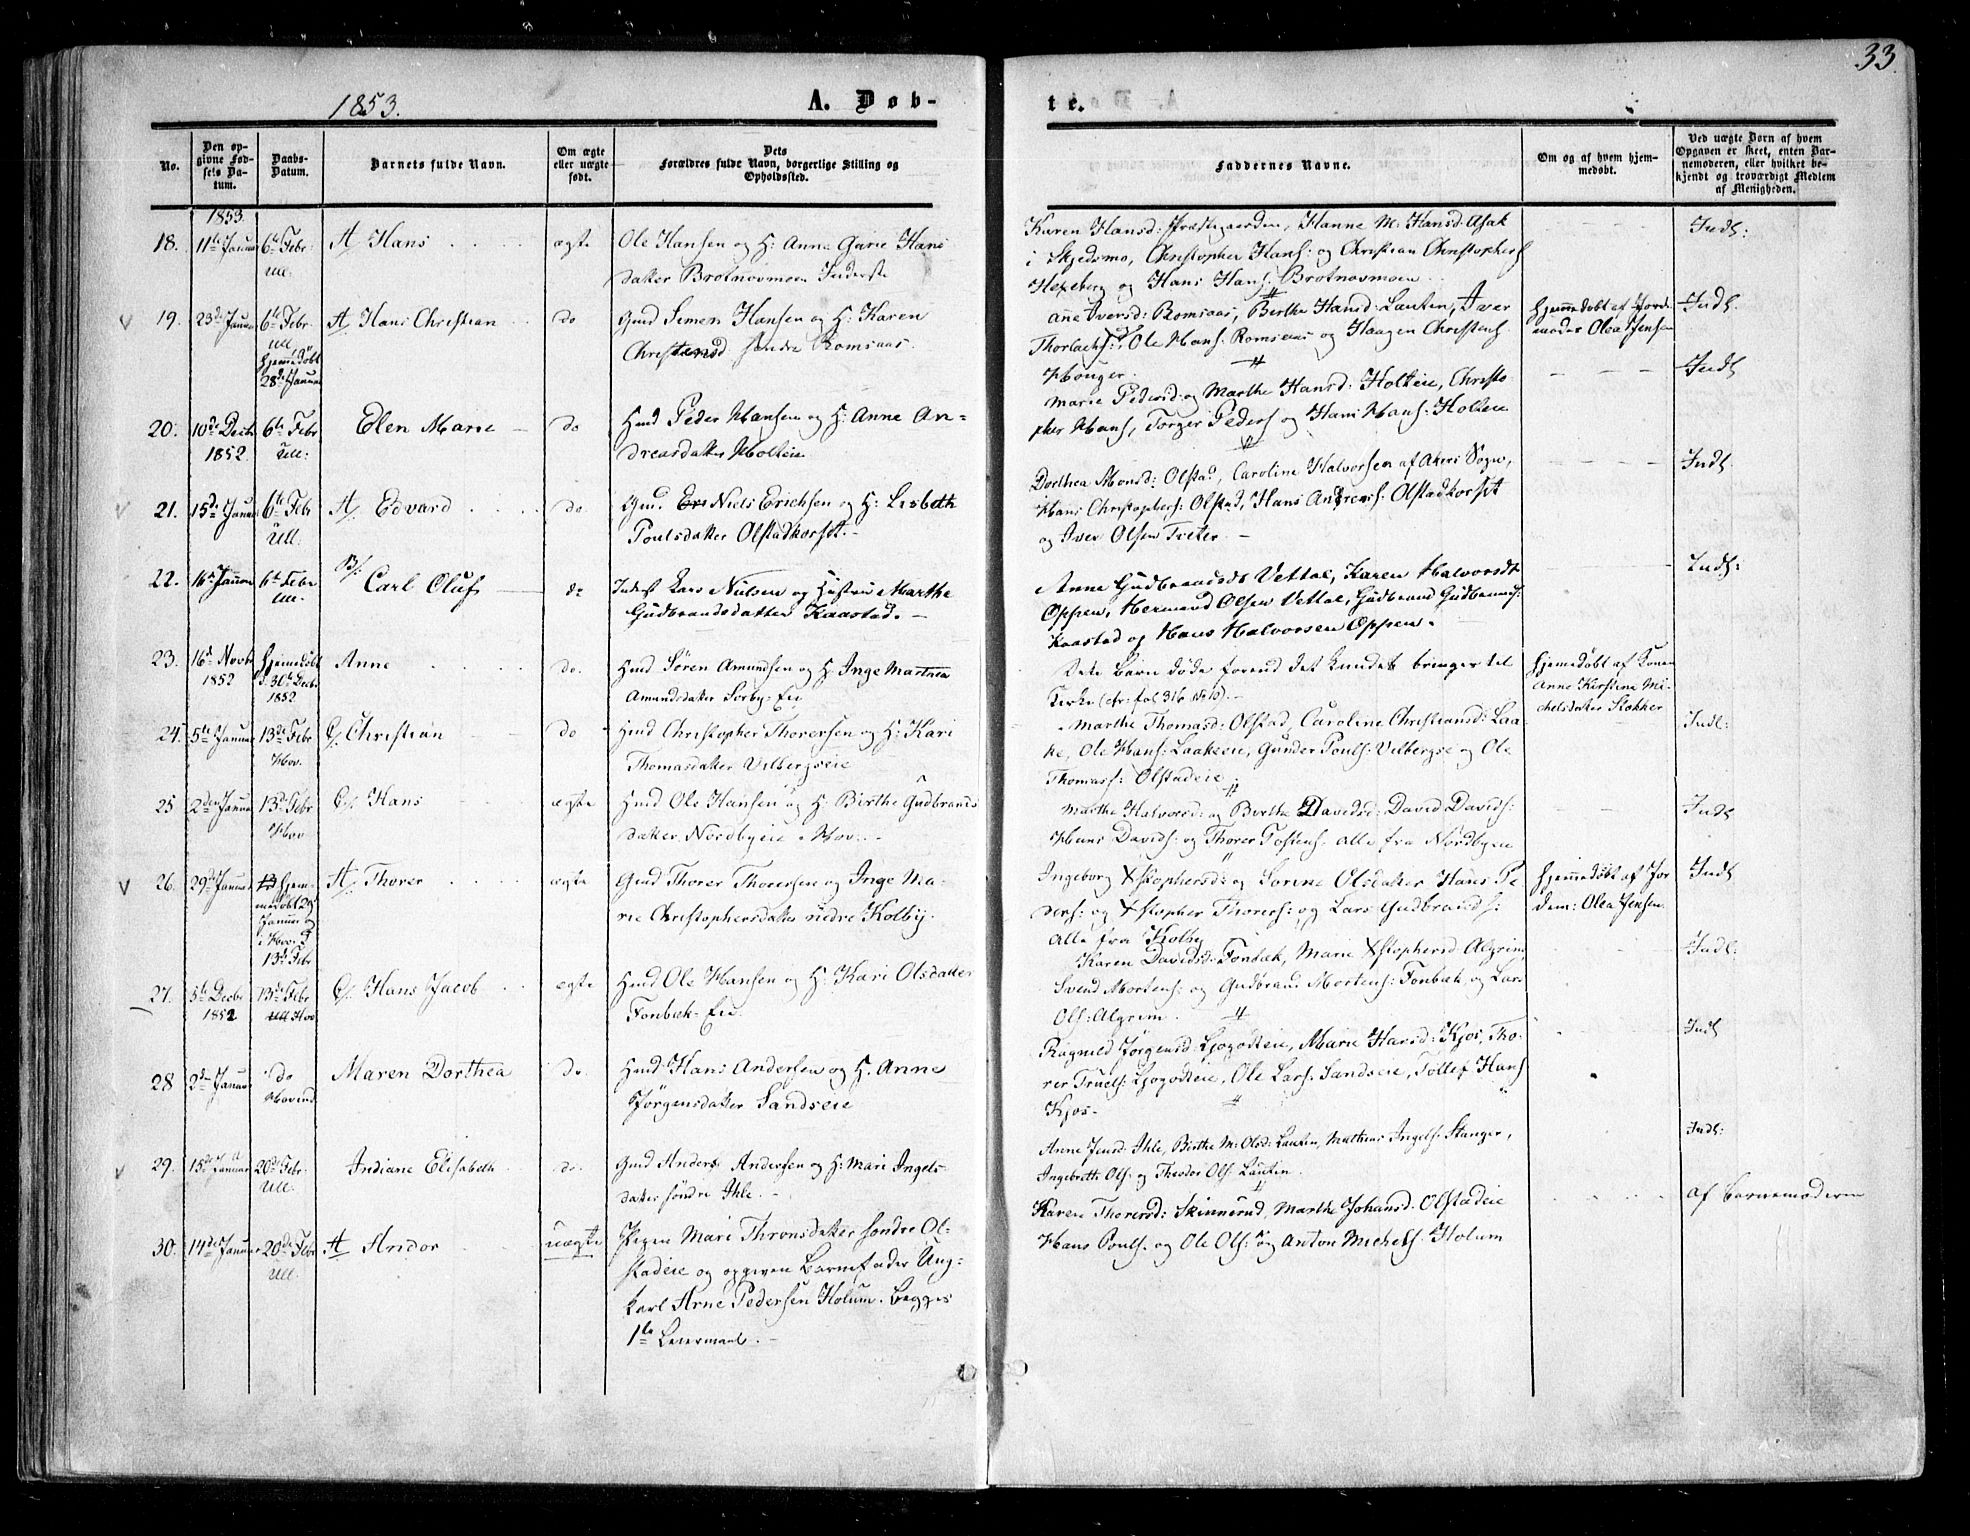 33
1853.
A. Døb-
te.
No.
Den op-
givne Fød-
sels Da-
tum.
Daabs-
Datum.
Barnets fulde Navn.
Om ægte
eller uægte
født.
Dets
Forældres fulde Navn, borgerlige Stilling og
Opholdssted.
Faddernes Navne.
Om og af hvem hjem-
medøbt.
Ved uægte Børn af hvem
Opgaven er skeet, enten Bar-
nemoderen, eller hvilket be-
kjendt og troværdigt Medlem
af Menigheden.
1853
18. 11te Januar 6te Febr Ull. A/ Hans ægte
Ole Hansen og H: Anne Garie Hans
datter Brotnovmoen Inderste
Karen Hansd: Præstegaarden, Hanne M: Hansd: Asak
i Skjedsmo, Christopher Hans: og Christian Christophers
Hexeberg og Hans Hans: Brotnovmoen
Indl:
19. 23de Januar 6te Febr Ull, hjemmedøbt 28de Januar A/ Hans Christian do
Gmd Simen Hansen og H: Karen
Christensd. søndre Romsaas.
Anne Iversd: Romsaas, Berthe Hansd: Lautin, Iver
Thorlachs:, Ole Hans: Romsaas og Haagen Christens
Houger.
hjemmedøbt af Jorde
moder Olea Jensen
Indl.
20. 10de Decb 1852. 6te Febr Ull: Elen Marie do
Hmd Peder Hansen og H: Anne An-
dreasdatter Holteie
Marie Pedersd: og Marthe Hansd: Holteie, Christo-
pher Hans, Torger Peders og Hans Hans: Holteie
Indl
21. 15de Januar 6te Febr Ull. A/ Edvard do.
Gmd. Niels Erichsen og H: Lisbeth
Poulsdatter Olstadkorset.
Dorthea Monsd: Olstad, Caroline Halvorsen af Akers Sogn,
Hans Christophers: Olstad, Hans Andreas: Olstadkorset
og Iver Olsen Træter.
Indl
22. 16de Januar 6te Febr Ull B/: Carl Oluf do
Inderst Lars Nielsen og Hustrue Marthe
Gudbrandsdatter Kaastad.
Anne Gudbrandsdt Vettal, Karen Halvorsdt
Oppen, Hermand Olsen Vettal, Gudbrand Gudbrands:
Kaastad og Hans Halvorsen Oppen.
Indl:
23. 16de Novb 1852 hjemmedøbt d: 30te Decbr 1852 Anne do.
Hmd Sören Amundsen og H: Inge Martnea
Amundsdatter Sorby-Eie
Dette Barn døde forend det kundet bringes til
Kirke (cfr: fol 316 No 10).
hjemmedøbt af Konen
Anne Kirstine Mi-
chelsdatter Slokker
24. 5te Januar 13de Febr Hov. C/. Christian do
Hmd Christopher Thorersen og H: Kari
Thomasdatter Vilbergseie
Marthe Thomasd: Olstad, Caroline Christiansd: Laa-
ke, Ole Hans: Laakeeie, Gunder Pouls: Vilbergse og Ole
Thomass: Olstadeie
Indl:
25 2den Januar 13de Febr Hov C/. Hans ægte
Hmd Ole Hansen og H: Birthe Gudbrands
datter Nordbyeie i Hov.
Marthe Halvorsd: og Berthe Davidsd: David Davids:
Hans Davids: og Thorer Tostens. alle fra Nordbyen
Indl
26. 29de Januar hjem-
medøbt 29
Januar og
i Hov. d
13de Febr A/. Thorer ægte
Gmd Thorer Thorersen og Inge Ma-
rie Christophersdatter nedre Kolby.
Ingeborg Xstophersd: og Sorine Olsdatter Hans Pe
ders: og Xstopher Thorers: og Lars Gudbrands:
alle fra Kolby
hjemmedøbt af Jor
dem: Olea Jensen
Indl
27. 5te Decbr 1852 13de Febr Ull Hov C/. Hans Jacob ægte
Hmd Ole Hansen og H: Kari Olsdatter
Fonbæk-Eie
Karen Davidsd: Fonbæk, Marie Xstophersd Algrim
Svend Mortens: og Gudbrand Mortens: Fonbæk og Lars
Ols: Algrim.
Indl:
28 2den Januar do Hovind Maren Dorthea do.
Hmd Hans Andersen og H. Anne
Jörgensdatter Sandseie
Ragnild Jörgensd: Ljogodteie, Marie Hansd: Kjos, Tho-
rer Truels: Ljogodteie, Ole Lars: Sandseie, Tollef Hans
Kjos-
Indl
29. 15de Januar 20de Febr: Ull. Indiane Elisabeth do.
Gmd Anders Andersen og H: Mari Ingels-
datter søndre Ihle.
Anne Jensd: Ihle, Birthe M: Olsd: Lautin, Mathias Ingels: Stanger,
Ingebreth Ols: og Theodor Ols: Lautin.
Indl:
30. 14de Januar 20de Febr Ull. A/ Andor uægte
Pigen Mari Thronsdatter søndre Ol-
stadeie og opgiven Barnefader Ung-
karl Arne Pedersen Holum. Begges
1te Leiermaal.
Karen Thorersd: Skinnerud, Marthe Johansd. Olstadeie
Hans Pouls. og Ole Ols: og Anton Michels. Holum
af Barnemoderen